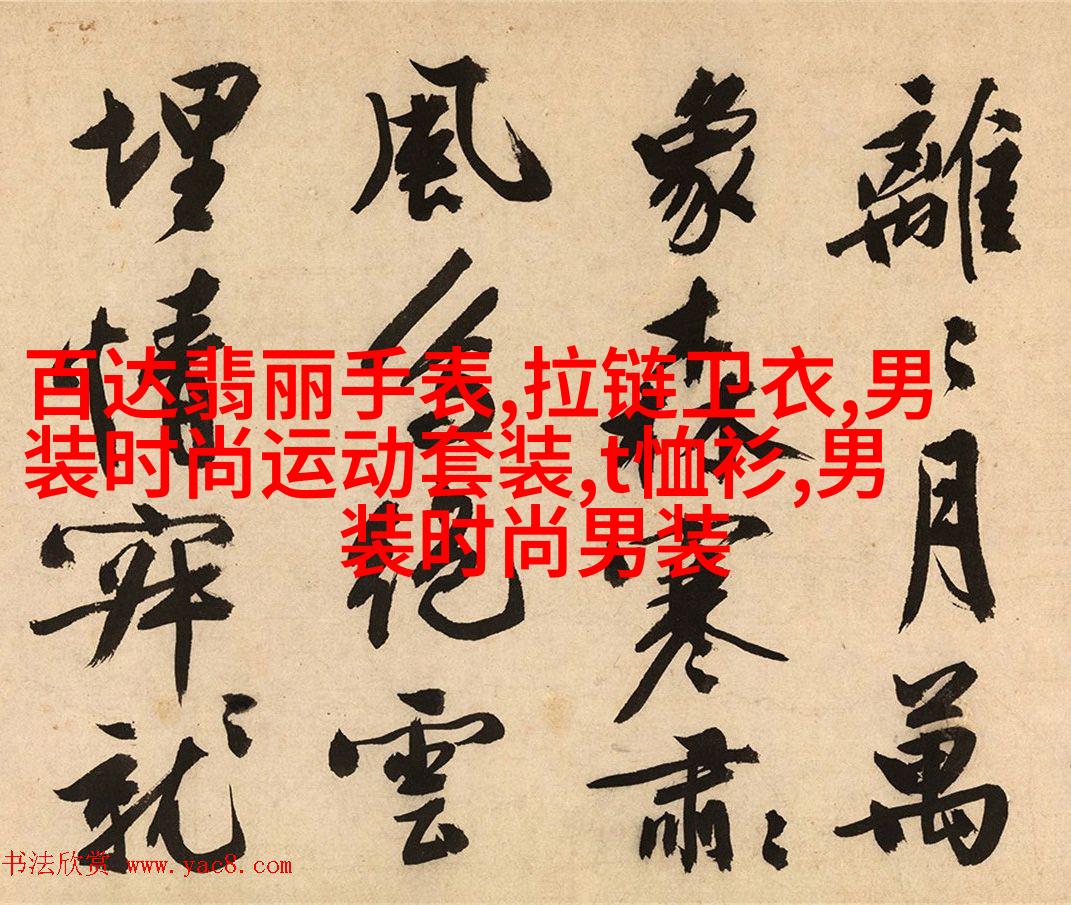 離〻月萬
象森寒肅〻
風絕雲
埋情〻就
百达翡丽手表,拉链卫衣,男
装时尚运动套装,t恤衫,男
装时尚男装
书法欣赏 www.yac8.com